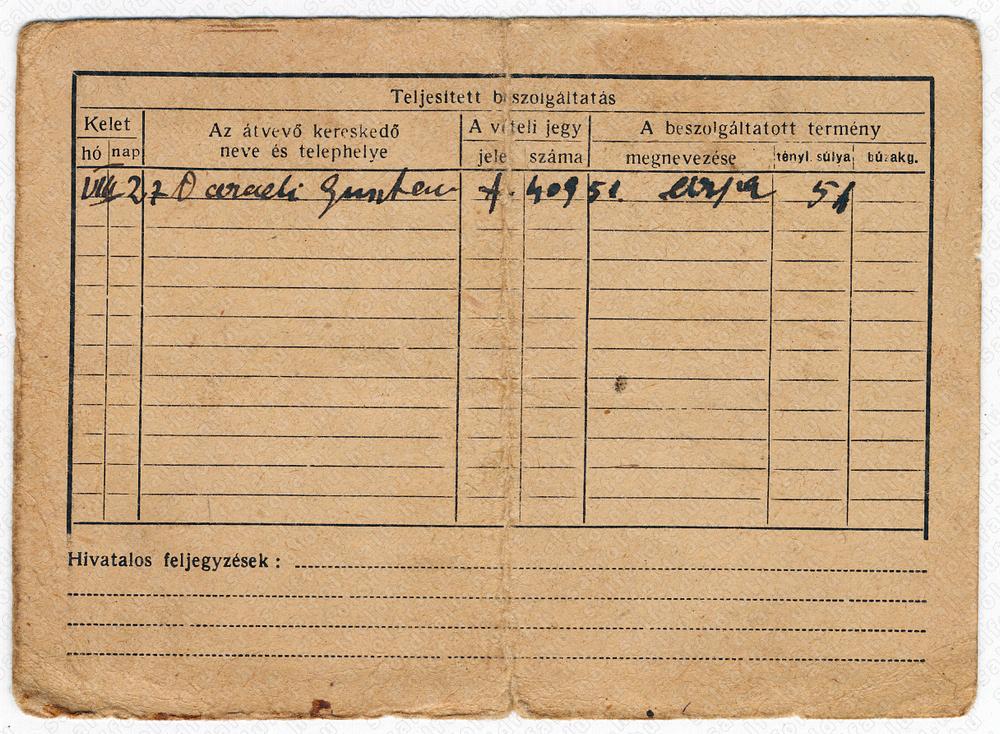 Teljesített beszolgáltatás
Kelet
Az átvevő kereskedő
neve és telephelye
A vételi jegy
A beszolgáltatott termény
hó nap
jele száma megnevezése tényl. súlya búzakg.
VIII 27 A. 40951. árpa 51
Hivatalos feljegyzések :